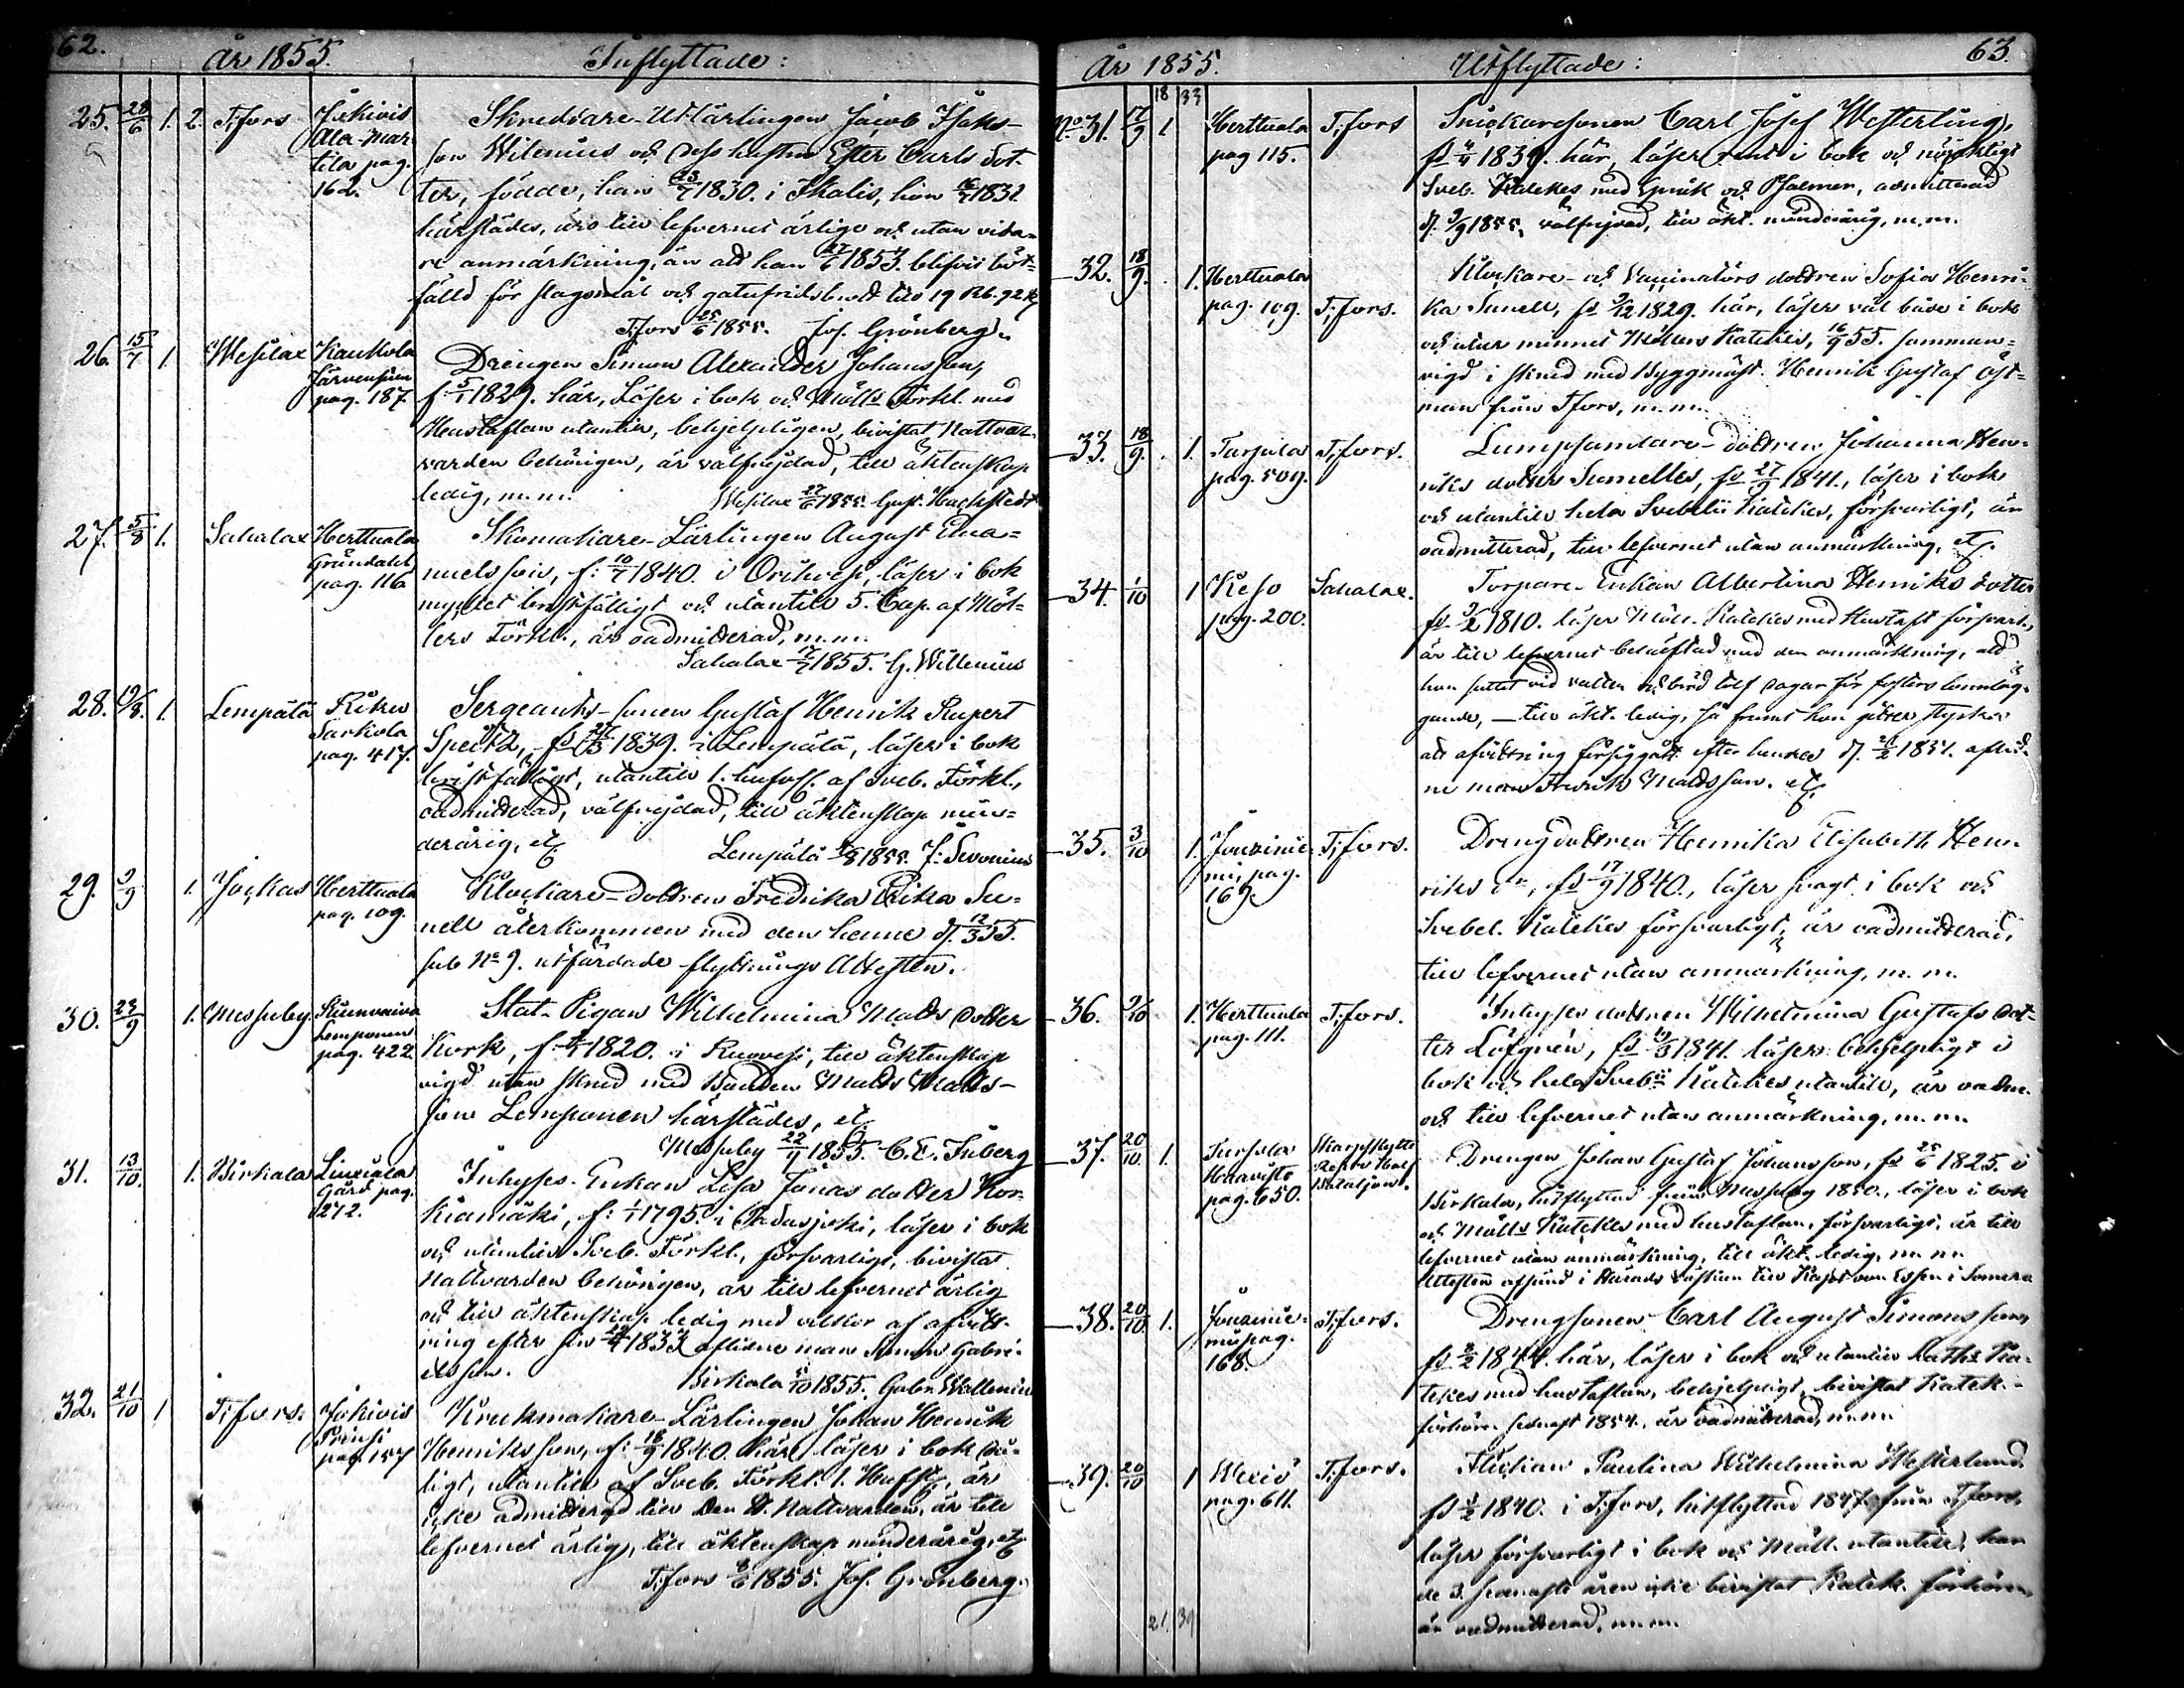 62.
År 1855.
Inflyttade:
25. 28/6 1. 2. T:fors Jokivis
Ala-Mar
tila pag.
162.
Skreddare-Utlärlingen Jacob Isaks-
son Wilenius och dess hustru Ester Carls dot-
ter, födde, han 23/7 1830. i Ikalis, hon 1832
härstädes, äro till lefvernet ärlige och utan vida-
re anmärkning, än att han 27/6 1853. blifvit böt-
fälld för slagsmål och gatufridsbrott till 19 Rb. 92 k
T:fors 25/6 1855. Jos. Grönberg.
26. 15/7 1. Wesilax Kaukola
Järvensivu
pag. 187
Drengen Simon Alexander Johansson,
f. 5/1 1829. här, Läser i bok och Mölls Förkl. med
Hustaflan utantill, behjelpligen, bivistat Nattvar-
varden behörigen, är välfrejdad, till äktenskap
ledig, m.m.
Wesilax 27/6 1855. Gust. Hachstedt
27. 5/8 1. Sahalax Herttuala
Gröndahl
pag. 116
Skomakare-Lärlingen August Ema-
nuelsson, f: 10/7 1840. i Orihvesi, läser i bok
mycket bristfälligt och utantill 5. Cap. af Möl-
lers Förkl., är oadmitterad, m.m.
Sahalax 17/7 1855. G. Willenius
28. 19/8. 1. Lempälä Riken
Sarkola
pag. 417.
Sergeants-sonen Gustaf Henrik Rupert
Speitz, fd 27/3 1839. i Lempälä, läser i bok
bristfälligt, utantill 1. hufvst. af Sveb. Förkl.,
oadmitterad, välfrejdad, till äktenskap min-
derårig, etc.
Lempälä 1855. J: Sevonius
29. 9/9 1. Jockas Herttuala
pag. 109.
Klockare-Dottren Fredrika Erika Su-
nell återkommen med den henne d. 12/3 55.
sub No 9. utfärdade flyttnings Attesten.
30. 23/9 1. Messuby
Lemponen
pag. 422
Stat-Pigan Wilhelmina Mats dotter
Kork, f. 1820. i Ruovesi, till äktenskap
vigd utan skrud med Bonden Matts Matts-
son Lemponen härstädes, etc.
Messuby 22/9 1855. C. E. Inberg
31. 13/10. 1. Birkala Liuxiala
Gård pag.
272.
Inhyses-Enkan Lisa Jonas dotter Kor-
kiamäki, f: 1/1 1795. i Padasjoki, läser i bok
och utantill Sveb. Förkl., försvarligt, bivistat
Nattvarden behörigen, är till lefvernet ärlig
och till äktenskap ledig med vilkor af afvitt-
ring efter sin 1833 aflidne man Simon Gabri-
elsson.
Birkala 5/10 1855. Gabr. Wallenius
32. 21/10 1 T:fors. Jokivis
Prinsi
pag. 157
Krukmakare-Lärlingen Johan Henrik
Henriksson, f: 18/9 1840. här läser i bok då-
ligt, utantill af Sveb. Förkl. 1. Hufst., är
icke admitterad till den H. Nattvarden, är till
lefvernet ärlig, till äktenskap minderårig, etc.
T:fors 1855. Jos. Grönberg.
År 1855.
Utflyttade:
63.
18 33
No 31. 17/9 1 Herttuala
pag 115. T:fors
Snickaresonen Carl Josef Westerling,
fd 1839. här, läser rent i bok och nöjaktigt
Sveb. Katekes med Språk och Psalmer, admitterad
d. 9/9 1855, välfrejdad, till äkt. minderårig, m.m.
32. 18/9. 1. Herttuala
pag. 109. T:fors.
Klockare- och Vaccinatörs dottren Sofia Henri-
ka Sunell, fd 9/12 1829. här, läser väl både i bok
och utur minnet Möllers Katekes, 16/9 55. samman-
vigd i skrud med Byggmäst. Henrik Gustaf Öst-
man från T:fors, m.m.
33. 18/9. 1. Tarpila
pag. 509. T:fors.
Lumpsamlare-dottren Johanna Hen-
riks dotter Sumelles, fd 27/9 1841., läser i bok
och utantill hela Svebilii Katekes, försvarligt, är
oadmitterad, till lefvernet utan anmärkning, etc.
34. 1/10 1 Keso
pag. 200. Sahalax.
Torpare-Enkan Albertina Henriks dotter
fd 9/2 1810. läser Möll. Katekes med Hustafl. försvarl.,
är till lefvernet beskaffad med den anmärkning, att
hon suttet vid vatten och bröd tolf dagar för fosters lönnläg-
gande, — till äkt. ledig, så framt hon gitter styrka
att afvittring försiggått efter hennes d. 1851. aflid-
ne man Henrik Mattsson. etc.
35. 3/10 1. Jouxenie-
mi, pag.
169. T:fors.
Drengdottren Henrika Elisabeth Hen-
riks dr, fd 17/9 1840., läser svagt i bok och
Svebel. Katekes försvarligt, är oadmitterad,
till lefvernet utan anmärkning, m.m.
36. 9/10 1. Herttuala
pag. 111. T:fors.
Inhyses dottren Wilhelmina Gustafs dot-
ter Löfgrén, fd 10/3 1841. läser behjelpligt i
bok och hela Sveb:ii Katekes utantill, är oadm.
och till lefvernet utan anmärkning, m.m.
37. 20/10. 1.
Haavisto
pag. 650. Skarpskytte
Reserv
Bataljon.
Drengen Johan Gustaf Johansson, fd 25/6 1825. i
Birkala, hitflyttad från Messuby 1850., läser i bok
och Mölls Katekes med hustaflan, försvarligt, är till
lefvernet utan anmärkning, till äkt. ledig, m.m.
Attesten afsänd i till von Essen i Somero
38. 20/10 1. Jouxenie-
mi pag.
168. T:fors.
Drengsonen Carl August Simonsson,
fd 1844. här, läser i bok och utantill Ka-
tekes med hustaflan, behjelpligt, bivistat Katek.-
förhören sednast 1854. är oadmitterad, m.m.
39. 20/10 1 Wexiö
pag. 611. T:fors.
Flickan Paulina Wilhelmina Westerlund
fd 1/2 1840. i T:fors, hitflyttad 1847 från T:fors,
läser försvarligt i bok och Möll. utantill, har
de 3. sednaste åren icke bivistat Katek. förhören,
är oadmitterad, m.m.
21. 39